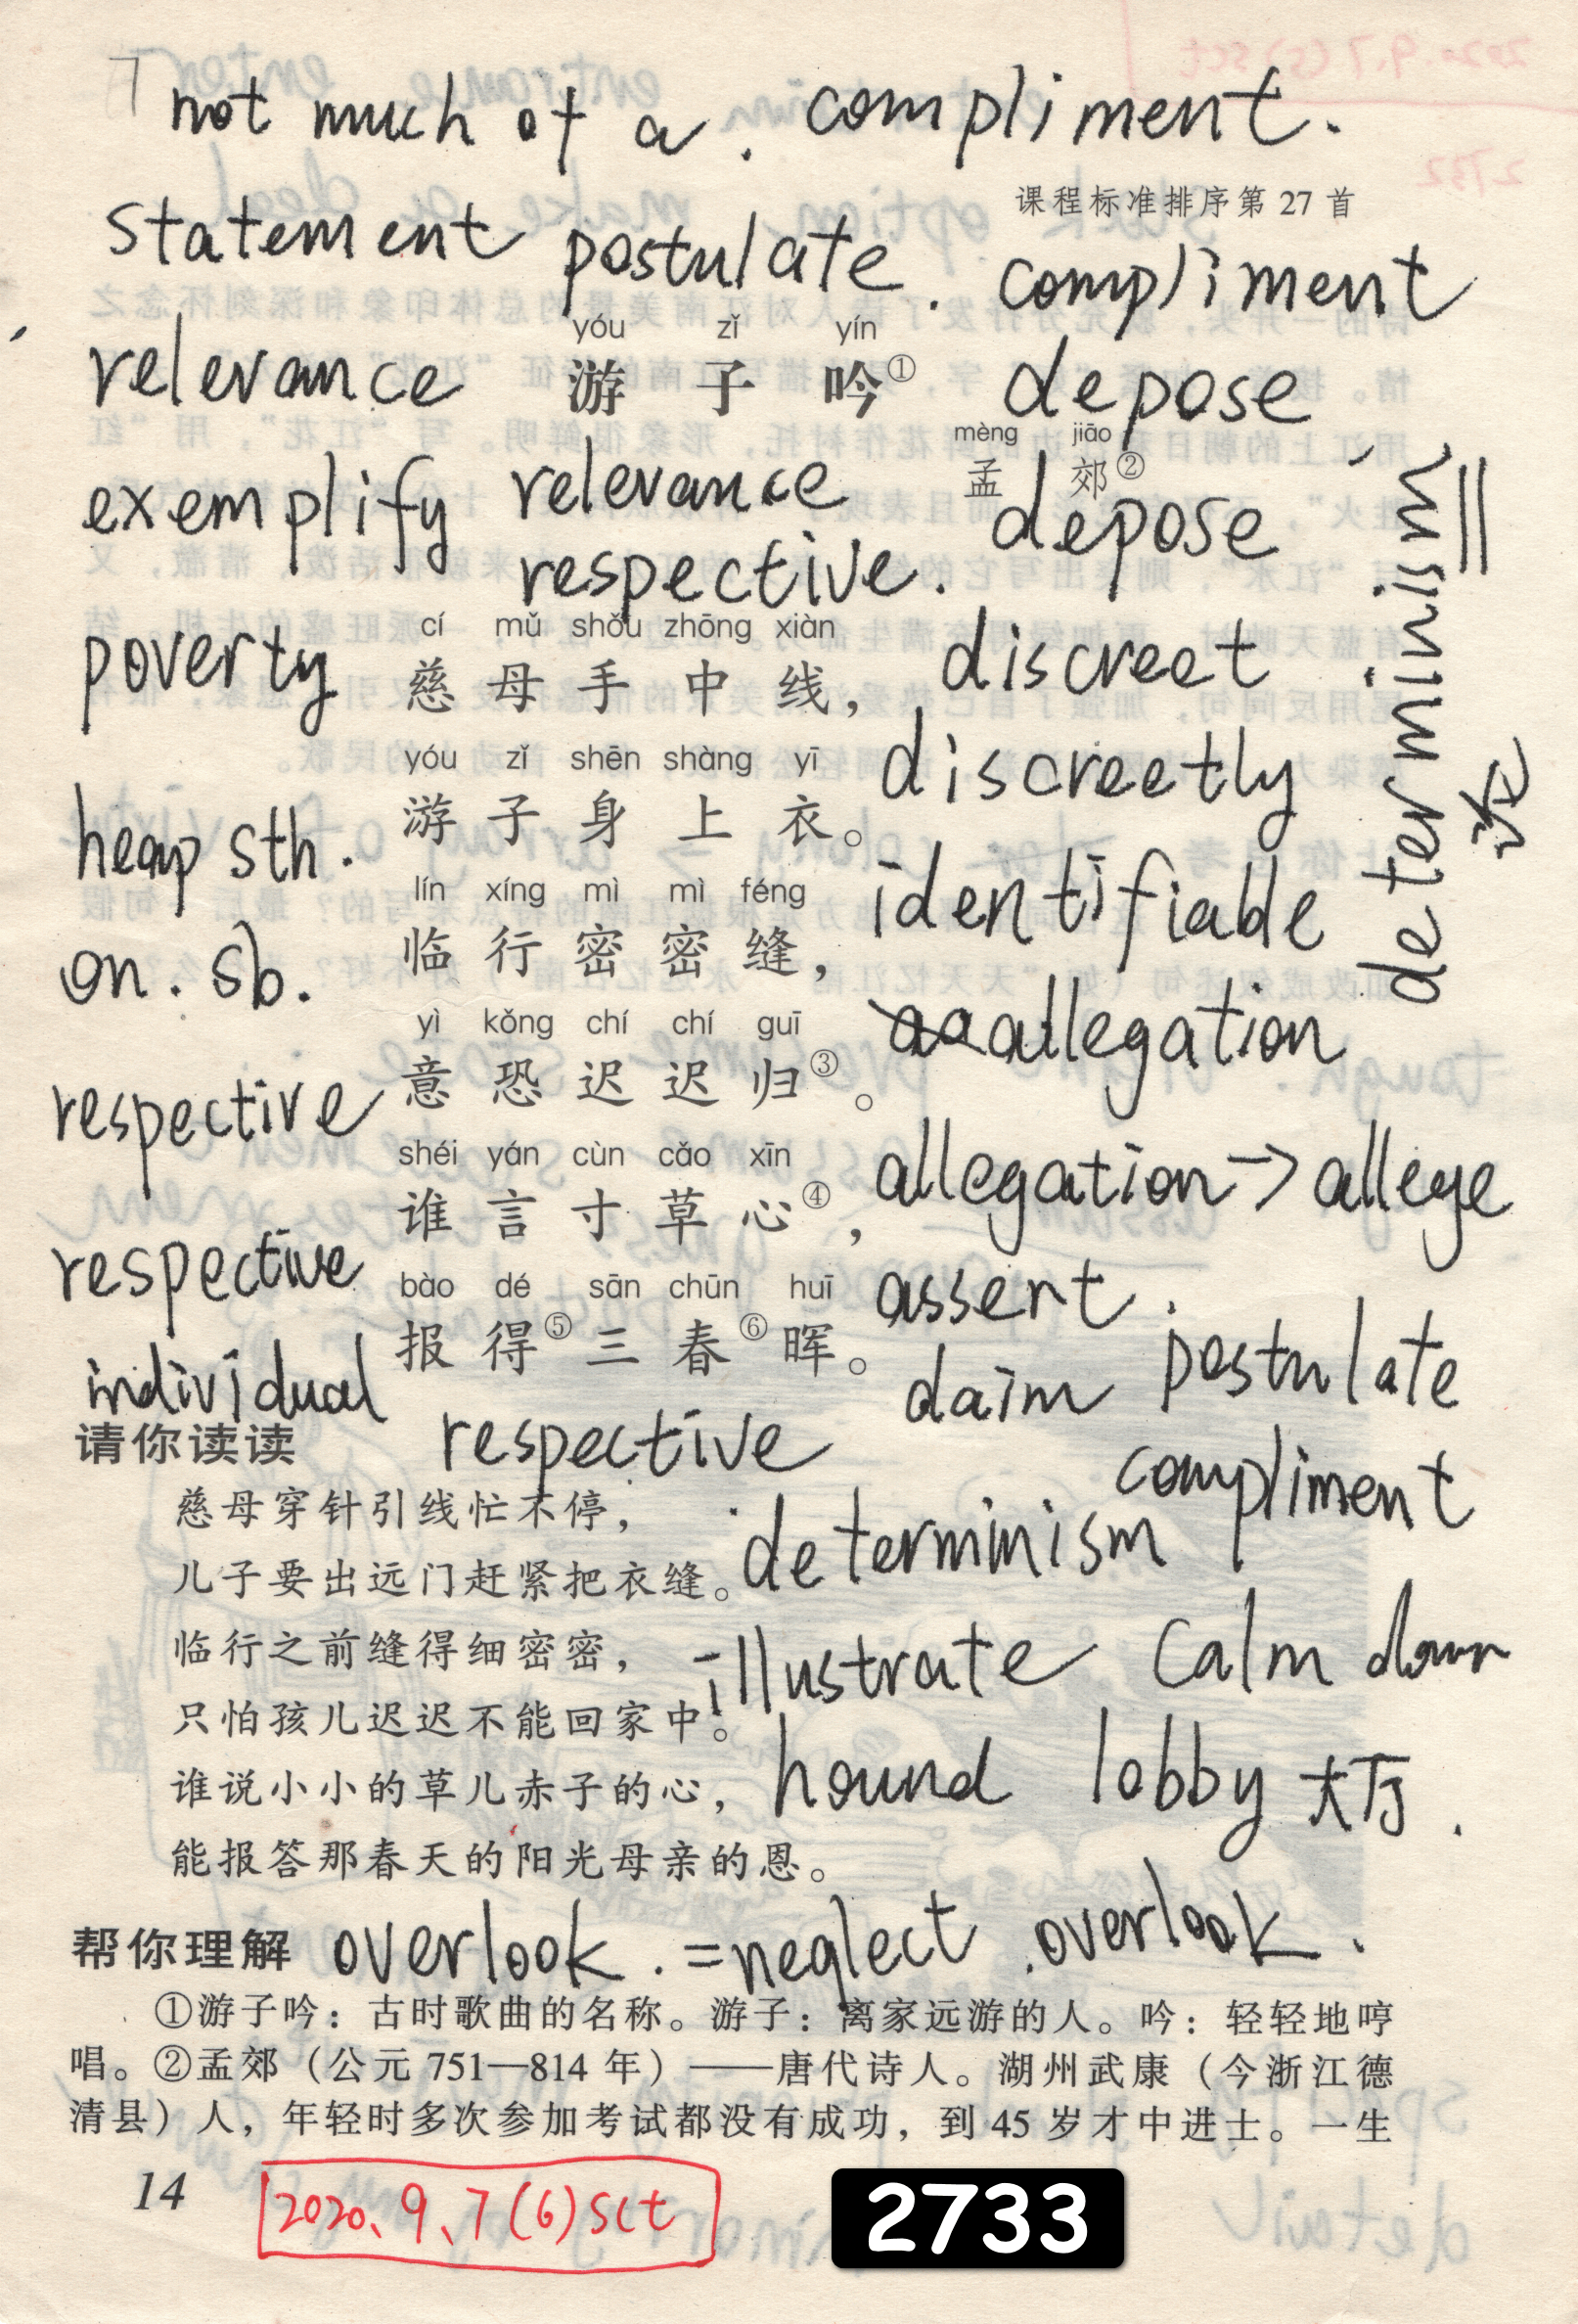 not much of a . compliment.
课程标准排序第 27 首
statement postulate . compliment
yóu zǐ yín
relevance 游 子 吟① depose
mèng jiāo
孟 郊②
exemplify relevance depose
respective .
determinism
论
cí mǔ shǒu zhōng xiàn
poverty 慈 母 手 中 线， discreet
yóu zǐ shēn shàng yī
游 子 身 上 衣。 discreetly
heap sth .
lín xíng mì mì féng
临 行 密 密 缝， identifiable
on . sb .
yì kǒng chí chí guī
意 恐 迟 迟 归③。 allegation
respective
shéi yán cùn cǎo xīn
谁 言 寸 草 心④， allegation → allege
respective
bào dé sān chūn huī
报 得⑤ 三 春⑥ 晖。 assert .
individual claim postulate
请你读读 respective compliment
慈母穿针引线忙不停，
儿子要出远门赶紧把衣缝。 determinism
临行之前缝得细密密， illustrate calm down
只怕孩儿迟迟不能回家中。
谁说小小的草儿赤子的心， hound lobby 大厅 .
能报答那春天的阳光母亲的恩。
帮你理解 overlook . = neglect . overlook .
①游子吟：古时歌曲的名称。游子：离家远游的人。吟：轻轻地哼
唱。②孟郊（公元 751—814 年）——唐代诗人。湖州武康（今浙江德
清县）人，年轻时多次参加考试都没有成功，到 45 岁才中进士。一生
14 2020、9、7(6)sct 2733